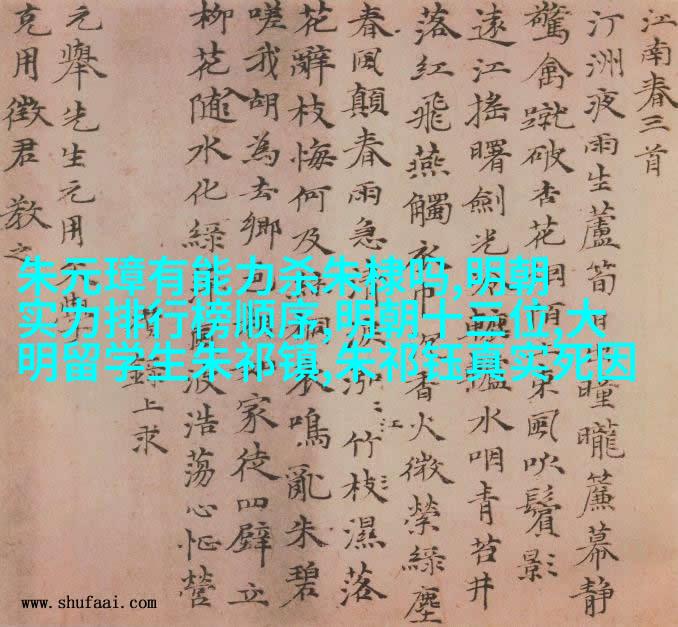 江南春三首
汀洲夜雨生蘆筍日曈曨簾幕靜
驚禽蹴破杏花頭東風吹鬢影
遠江搖曙劍光轆轤水咽青苔井
落紅飛燕觸衣巾香火微縈綠塵
春風顛春雨急清泓〻江竹枝〻濕落
花辭枝悔何及桐哀鳴亂朱碧
嗟我胡為去鄉邑家徒四壁立
柳花随水化綠風波浩蕩心怔營
瓚上求
元擧先生元用學
克用徵君 教之
朱元璋有能力杀朱棣吗,明朝
实力排行榜顺序,明朝十三位,大
明留学生朱祁镇,朱祁钰真实死因
www.shufaai.com